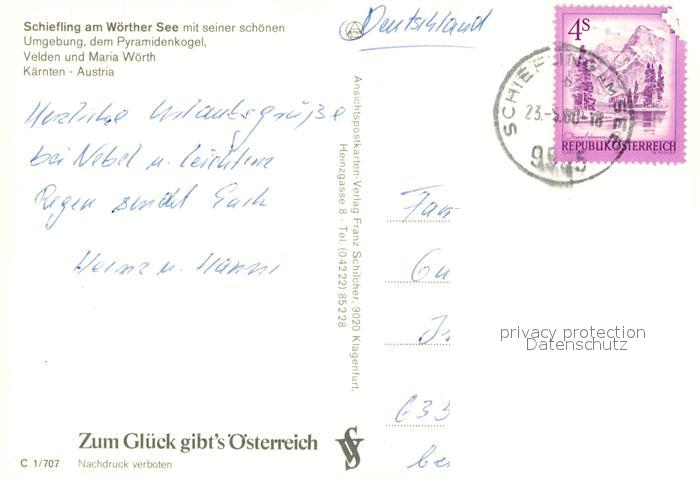 Schiefling am Wörther See mit seiner schönen
Umgebung, dem Pyramidenkogel,
Velden und Maria Wörth
Kärnten - Austria
Deutschland
4S
REPUBLIK ÖSTERREICH
SCHIEFLING AM SEE
23.-5.80-18
Herzliche Urlaubsgrüße
bei Nebel u. leichtem
Regen sendet Euch
Heinz u. Hanni
Ansichtspostkarten-Verlag Franz Schilcher, 9020 Klagenfurt,
Heinzgasse 8 - Tel. (0 42 22) 85 2 28
Fam
Gu
633
be
privacy protection
Datenschutz
Zum Glück gibt's Österreich
C 1/707 Nachdruck verboten